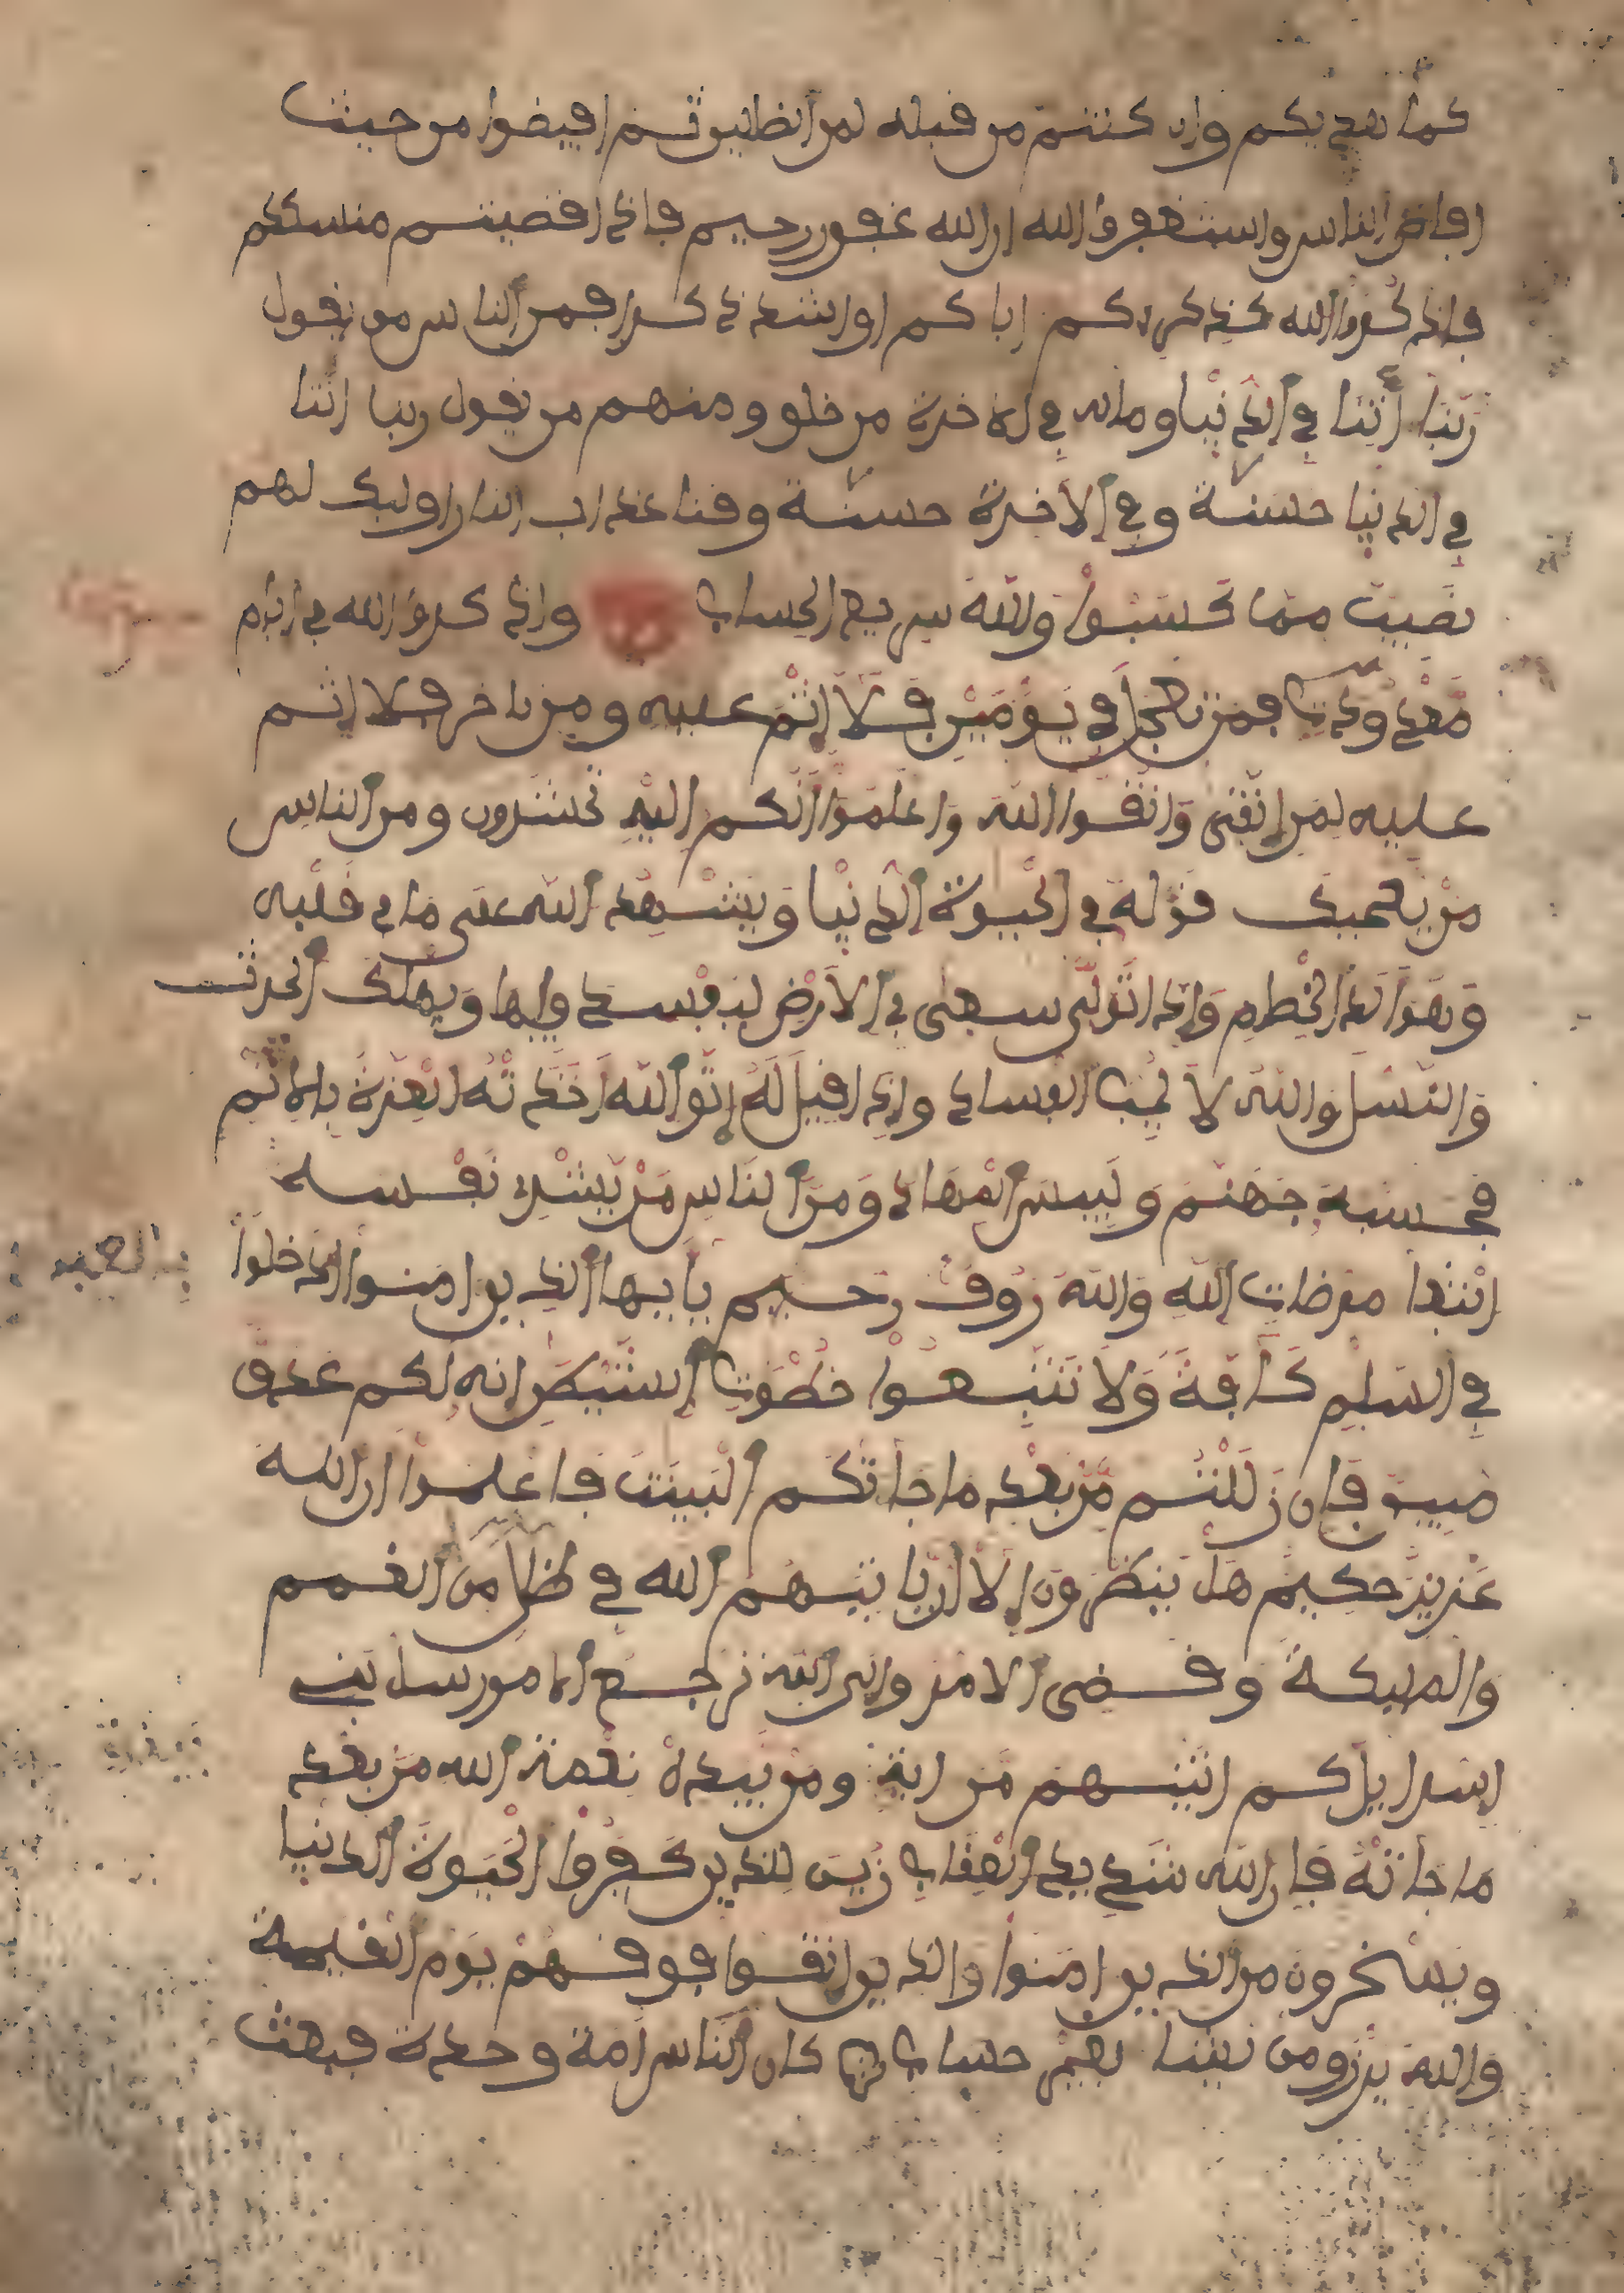 كما هديكم وان كنتم من قبله لمن الضالين ثم افيضوا من حيث
افاض الناس واستغفروا الله ان الله غفور رحيم فاذا قضيتم منسككم
فاذكروا الله كذكركم اباكم او اشد ذكرا فمن الناس من يقول
ربنا اتنا في الدنيا وما له في الاخرة من خلق ومنهم من يقول ربنا اتنا
في الدنيا حسنة وفي الاخرة حسنة وقنا عذاب النار اوليك لهم
نصيب مما كسبوا والله سريع الحساب واذكروا الله في ايام
معدودت فمن تعجل في يومين فلا اثم عليه ومن تاخر فلا اثم
عليه لمن اتقى واتقوا الله واعلموا انكم اليه تحشرون ومن الناس
من يعجبك قوله في الحيوة الدنيا ويشهد الله على ما في قلبه
وهو الد الخصام واذا تولى سعى في الارض ليفسد فيها ويهلك الحرث
والنسل والله لا يحب الفساد واذا قيل له اتق الله اخذته العزة بالاثم
فحسبه جهنم ولبيس المهاد ومن الناس من يشري نفسه
ابتغا مرضات الله والله روف رحيم يايها الذين امنوا ادخلوا
في السلم كافة ولا تتبعوا خطوت الشيطن انه لكم عدو
مبين فان زللتم من بعد ما جاتكم البينت فاعلموا ان الله
عزيز حكيم هل ينظرون الا ان ياتيهم الله في ظلل من الغمم
والمليكة وقضي الامر والى الله ترجع الامور سل بني
اسرايل كم اتينهم من اية ومن يبدل نعمة الله من بعد
ما جاته فان الله شديد العقاب زين للذين كفروا الحيوة الدنيا
ويسخرون من الذين امنوا والذين اتقوا فوقهم يوم القيمة
والله يرزق من يشا بغير حساب كان الناس امة وحدة فبعث